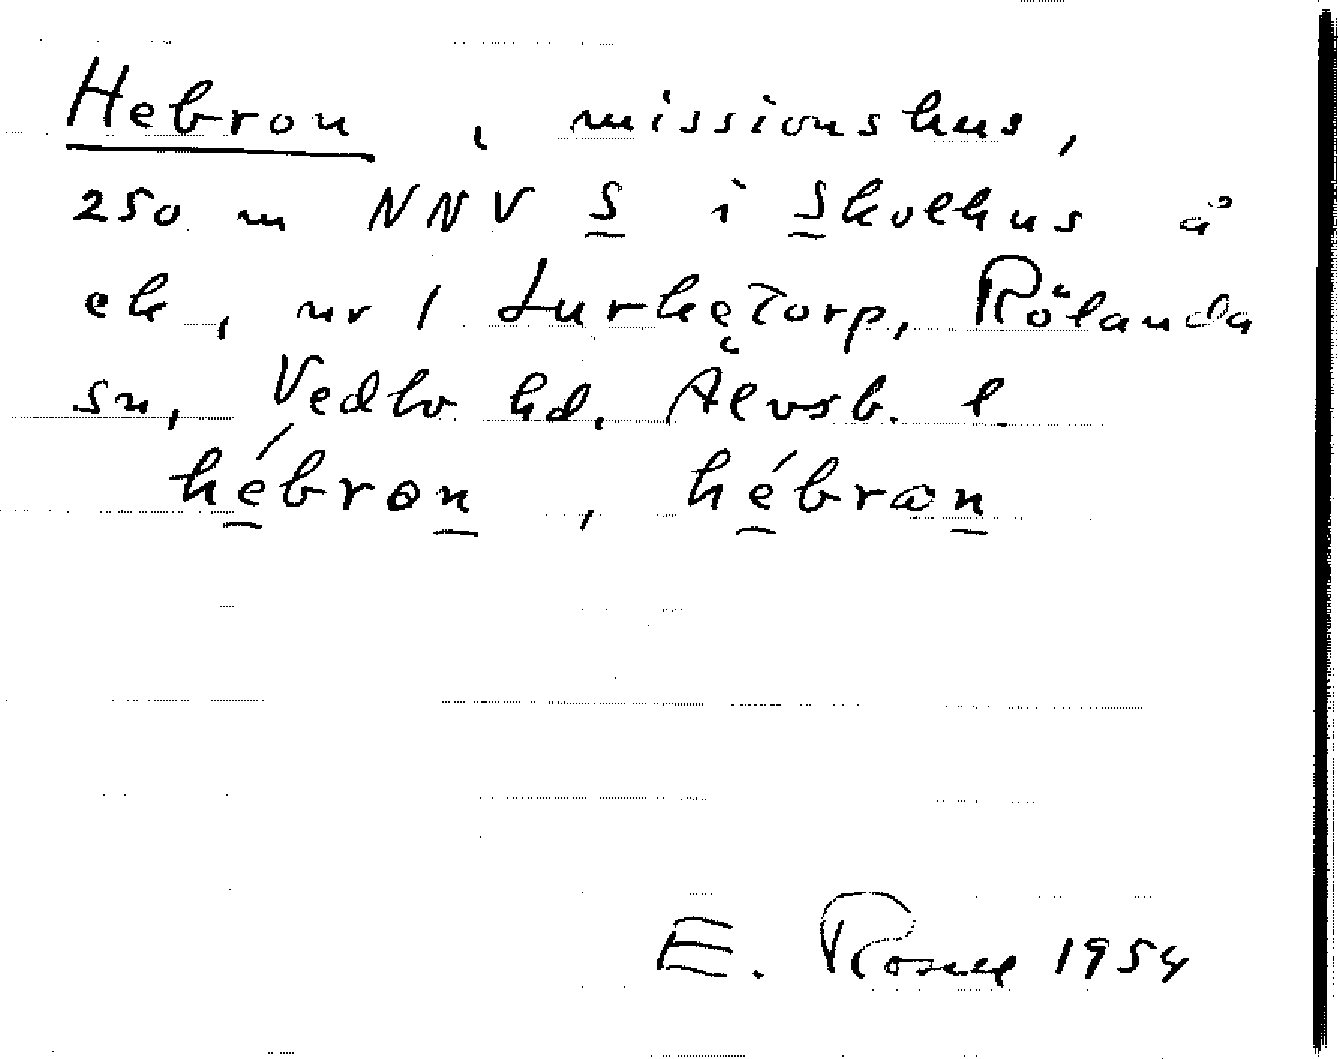 Hebron, missionshus,
250 m NNV S i Skolhus å
ek, nr 1 Lurketorp, Rölanda
sn, Vedbo hd, Älvsb. l
hébron, hébrɑn
E. 1954